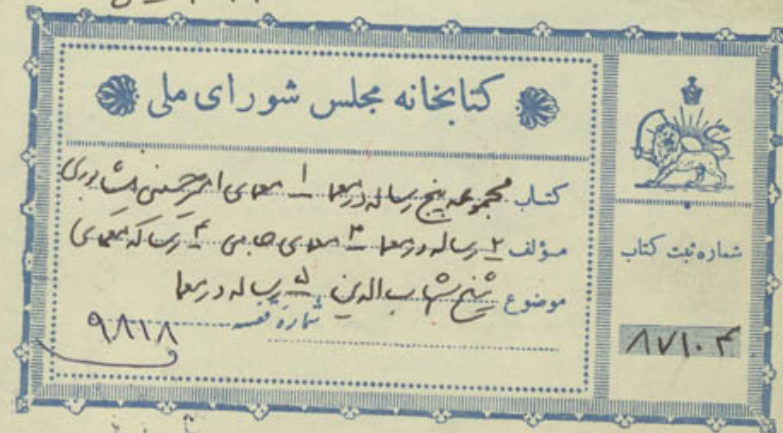 کتابخانه مجلس شورای ملی
کتاب مجموعه پنج رساله در معما ۱ معمای امیر حسینی نیشابوری
مؤلف ۲ رساله در معما ۳ معمای جامی ۴ رساله معمای
موضوع شیخ شهاب الدین ۵ رساله در معما
شماره قفسه ۹۸۱۸
شماره ثبت کتاب
۸۷۱۰۴